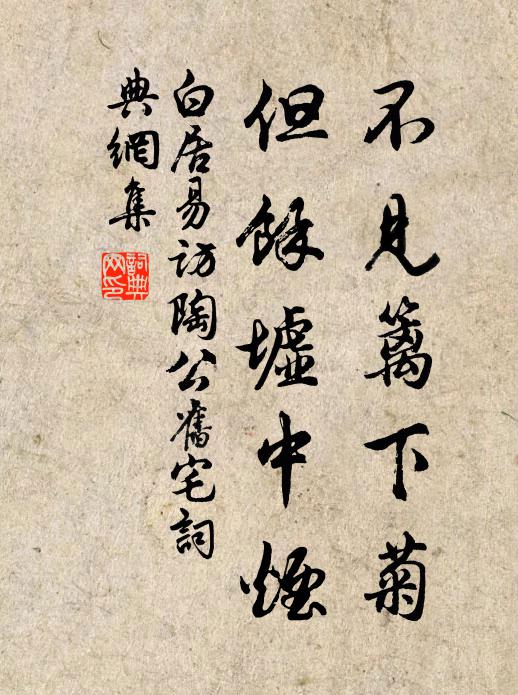 不見籬下菊
但餘墟中煙
白居易訪陶公舊宅詞
典網集
詞典網印